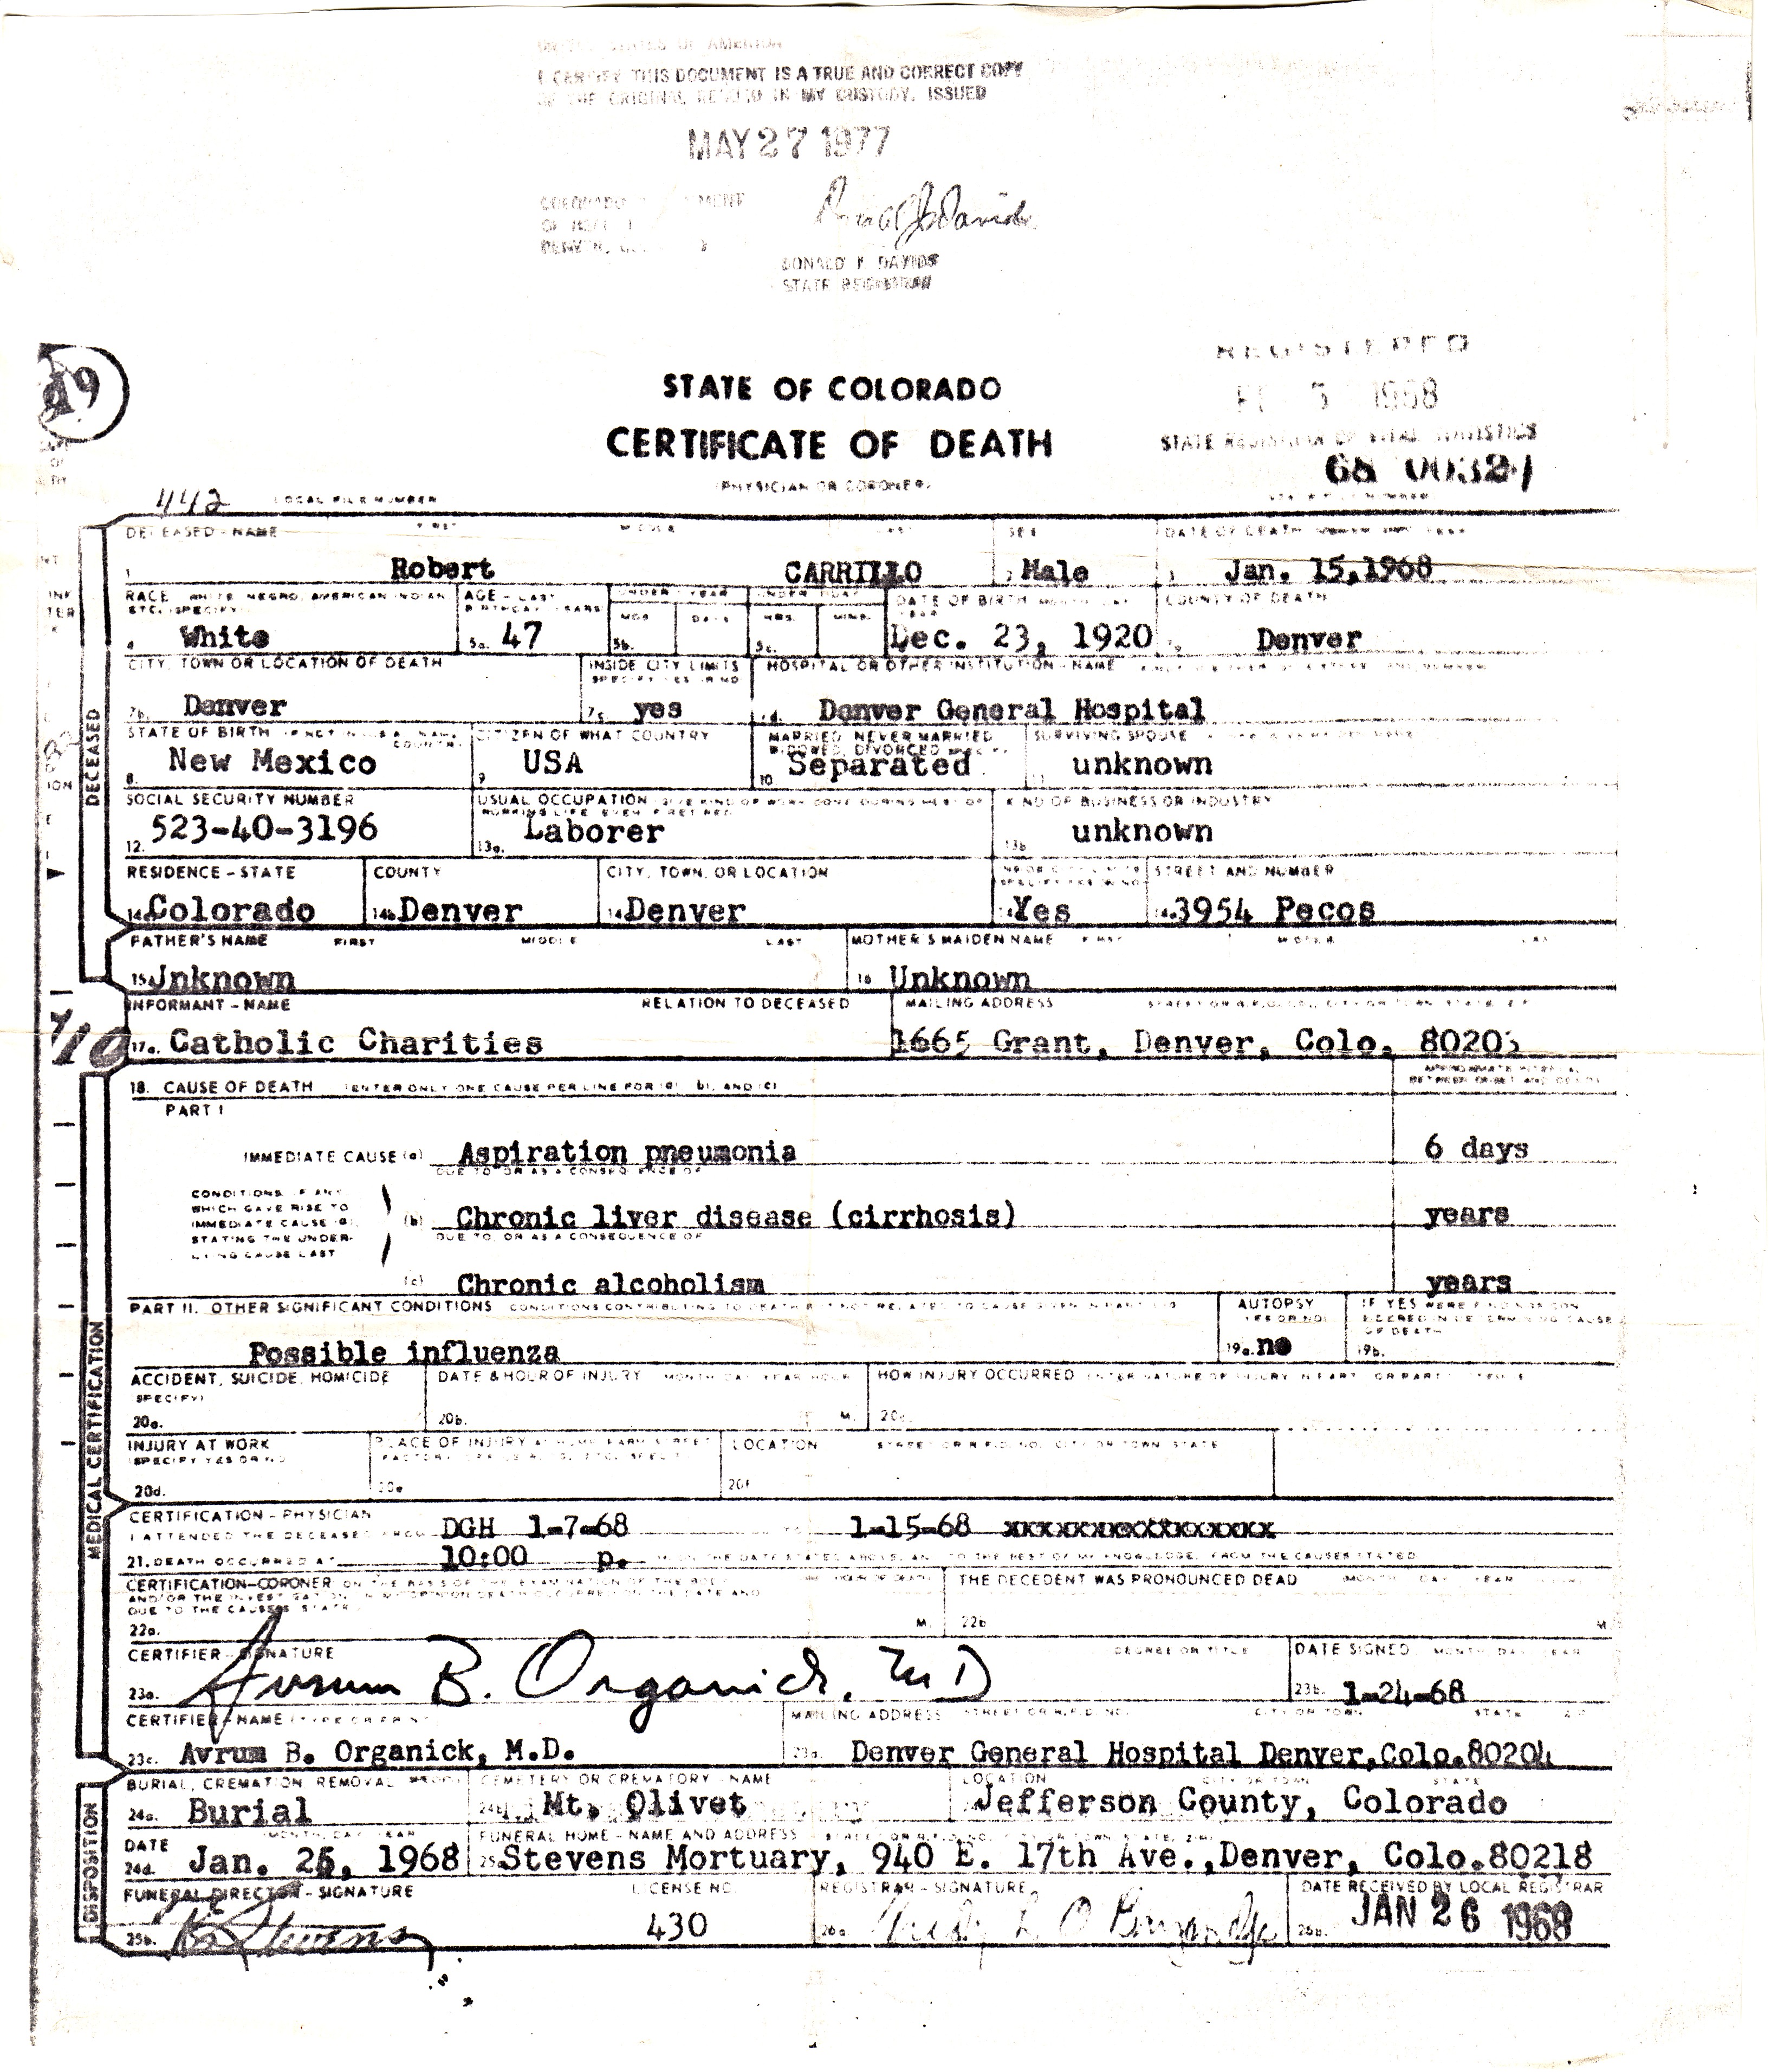 STATES OF AMERICA
I CERTIFY THIS DOCUMENT IS A TRUE AND CORRECT COPY
OF THE ORIGINAL RECORD IN MY CUSTODY, ISSUED
MAY 27 1977
DONALD DAVIDS
STATE REGISTRAR
REGISTERED
5 1968
STATE OF COLORADO
CERTIFICATE OF DEATH
STATE REGISTRAR OF VITAL STATISTICS
(PHYSICIAN OR CORONER)
442 LOCAL FILE NUMBER
DECEASED - NAME FIRST MIDDLE LAST SEX DATE OF DEATH
1 Robert CARRILLO Male Jan. 15, 1968
RACE WHITE, NEGRO, AMERICAN INDIAN AGE - LAST UNDER 1 YEAR UNDER 1 DAY DATE OF BIRTH COUNTY OF DEATH
ETC. (SPECIFY) BIRTHDAY (YEARS) MOS DAYS HRS. MINS. YEAR
4 White 5a. 47 5b. 5c. Dec. 23, 1920 Denver
CITY, TOWN OR LOCATION OF DEATH INSIDE CITY LIMITS HOSPITAL OR OTHER INSTITUTION - NAME
SPECIFY YES OR NO
7b. Denver 7c. yes Denver General Hospital
STATE OF BIRTH CITIZEN OF WHAT COUNTRY MARRIED, NEVER MARRIED SURVIVING SPOUSE
COUNTRY WIDOWED, DIVORCED
8. New Mexico 9 USA 10 Separated 11 unknown
SOCIAL SECURITY NUMBER USUAL OCCUPATION KIND OF BUSINESS OR INDUSTRY
12. 523-40-3196 13a. Laborer 13b unknown
RESIDENCE - STATE COUNTY CITY, TOWN, OR LOCATION STREET AND NUMBER
Colorado 14b Denver Denver Yes 3954 Pecos
FATHER'S NAME FIRST MIDDLE LAST MOTHER'S MAIDEN NAME FIRST MIDDLE
15 Unknown 16 Unknown
INFORMANT - NAME RELATION TO DECEASED MAILING ADDRESS
17a. Catholic Charities 1665 Grant, Denver, Colo. 80203
18. CAUSE OF DEATH (ENTER ONLY ONE CAUSE PER LINE FOR (a), (b), AND (c))
PART I
IMMEDIATE CAUSE (a) Aspiration pneumonia 6 days
DUE TO OR AS A CONSEQUENCE OF
CONDITIONS IF ANY
WHICH GAVE RISE TO
IMMEDIATE CAUSE (a), (b) Chronic liver disease (cirrhosis) years
STATING THE UNDER- DUE TO, OR AS A CONSEQUENCE OF
LYING CAUSE LAST
(c) Chronic alcoholism years
PART II. OTHER SIGNIFICANT CONDITIONS AUTOPSY IF YES
YES OR NO OF DEATH
Possible influenza 19a. no 19b.
ACCIDENT, SUICIDE, HOMICIDE DATE & HOUR OF INJURY MONTH DAY YEAR HOUR HOW INJURY OCCURRED
(SPECIFY)
20a. 20b. M. 20c.
INJURY AT WORK PLACE OF INJURY LOCATION
(SPECIFY YES OR NO)
20d. 20e 20f
CERTIFICATION - PHYSICIAN
I ATTENDED THE DECEASED FROM DGH 1-7-68 TO 1-15-68
21. DEATH OCCURRED AT 10:00 p. M. ON THE DATE STATED ABOVE, AND TO THE BEST OF MY KNOWLEDGE, FROM THE CAUSES STATED
CERTIFICATION - CORONER THE DECEDENT WAS PRONOUNCED DEAD
DUE TO THE CAUSES STATED
22a. M. 22b M
CERTIFIER - SIGNATURE DEGREE OR TITLE DATE SIGNED
23a. Avrum B. Organick, MD 23b. 1-24-68
CERTIFIER - NAME (TYPE OR PRINT) MAILING ADDRESS CITY OR TOWN STATE ZIP
23c. Avrum B. Organick, M.D. 23d. Denver General Hospital Denver, Colo. 80204
BURIAL, CREMATION, REMOVAL CEMETERY OR CREMATORY - NAME LOCATION
24a. Burial 24b. Mt. Olivet Jefferson County, Colorado
DATE FUNERAL HOME - NAME AND ADDRESS
24d. Jan. 26, 1968 25a. Stevens Mortuary, 940 E. 17th Ave., Denver, Colo. 80218
FUNERAL DIRECTOR - SIGNATURE LICENSE NO. REGISTRAR - SIGNATURE DATE RECEIVED BY LOCAL REGISTRAR
25b. Stevens 430 26a 26b. JAN 26 1968
DECEASED
MEDICAL CERTIFICATION
DISPOSITION